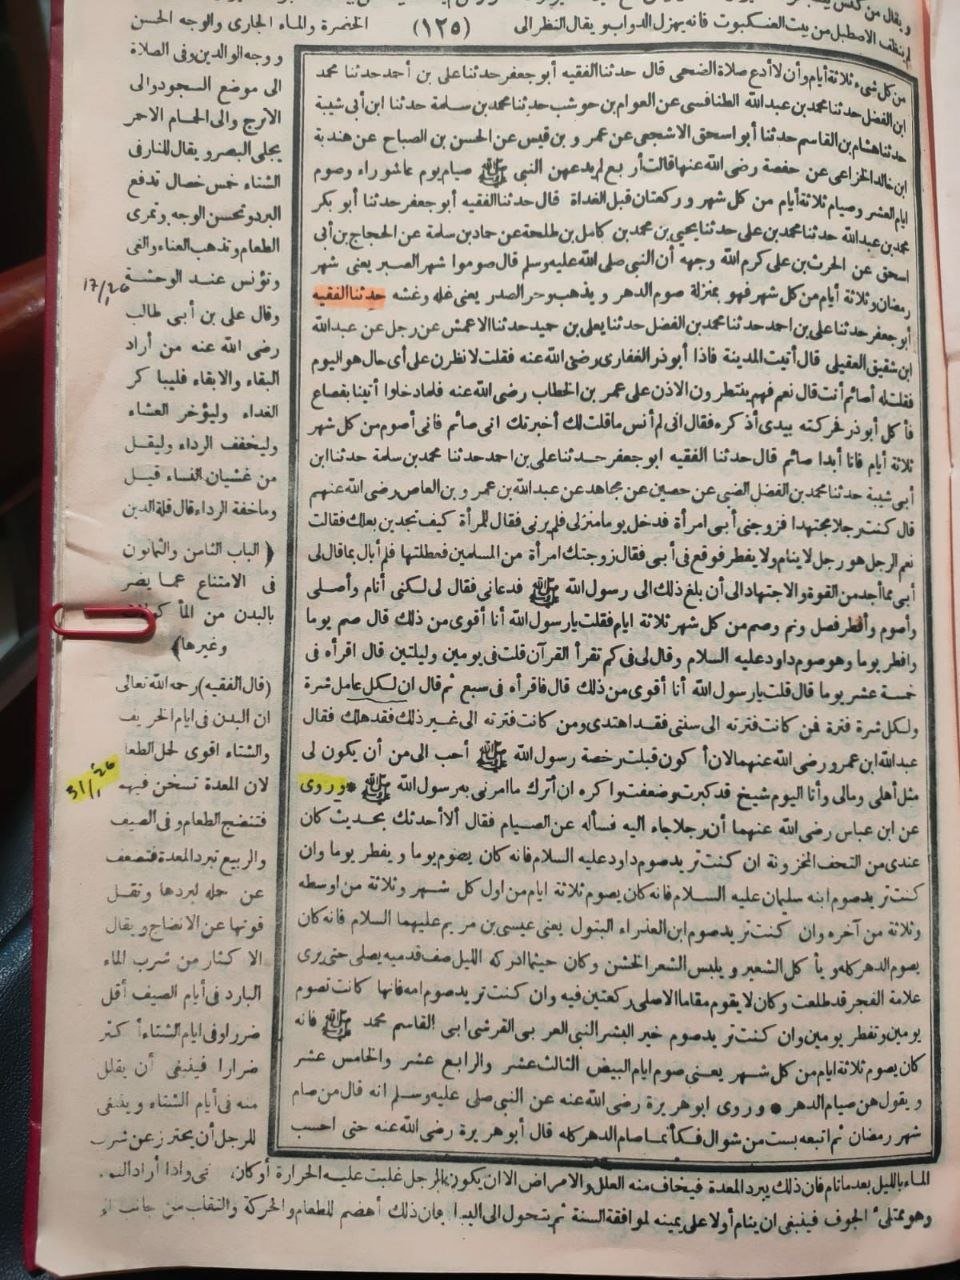 ويقال من كنس
لم ينظف الاصطبل من بيت العنكبوت فانه يهزل الدواب ويقال النظر الى
(١٢٥)
الخضرة والماء الجارى والوجه الحسن
من كل شىء ثلاثة أيام وأن لا أدع صلاة الضحى قال حدثنا الفقيه أبو جعفر حدثنا على بن أحمد حدثنا محمد
ابن الفضل حدثنا محمد بن عبد الله الطنافسى عن العوام بن حوشب حدثنا محمد بن سلمة حدثنا ابن أبى شيبة
حدثنا هشام بن القاسم حدثنا أبو اسحق الاشجعى عن عمرو بن قيس عن الحسن بن الصباح عن هندية
ابن خالد الخزاعى عن حفصة رضى الله عنها قالت أربع لم يدعهن النبى ﷺ صيام يوم عاشوراء وصوم
ايام العشر وصيام ثلاثة أيام من كل شهر وركعتان قبل الغداة قال حدثنا الفقيه أبو جعفر حدثنا أبو بكر
محمد بن عبد الله حدثنا محمد بن على حدثنا يحيى بن محمد بن كامل بن طلحة عن حماد بن سلمة عن الحجاج بن أبى
اسحق عن الحرث بن على كرم الله وجهه أن النبى صلى الله عليه وسلم قال صوموا شهر الصبر يعنى شهر
رمضان وثلاثة أيام من كل شهر فهو بمنزلة صوم الدهر ويذهب وحر الصدر يعنى غله وغشه حدثنا الفقيه
أبو جعفر حدثنا على بن احمد حدثنا محمد بن الفضل حدثنا يعلى بن حميد حدثنا الاعمش عن رجل عن عبد الله
ابن شقيق العقيلى قال أتيت المدينة فاذا أبو ذر الغفارى رضى الله عنه فقلت لانظرن على أى حال هو اليوم
فقلت له أصائم أنت قال نعم فهم ينتظرون الاذن على عمر بن الخطاب رضى الله عنه فلما دخلوا أتينا بقصاع
فأكل أبو ذر فحركته بيدى أذكره فقال انى لم أنس ما قلت لك أخبرتك انى صائم فانى أصوم من كل شهر
ثلاثة أيام فانا أبدا صائم قال حدثنا الفقيه ابو جعفر حدثنا على بن احمد حدثنا محمد بن سلمة حدثنا ابن
أبى شيبة حدثنا محمد بن الفضل الضبى عن حصين عن مجاهد عن عبد الله بن عمرو بن العاص رضى الله عنهم
قال كنت رجلا مجتهدا فزوجنى أبى امرأة فدخل يوما منزلى فلم يرنى فقال للمرأة كيف تجدين بعلك فقالت
نعم الرجل هو رجل لا ينام ولا يفطر فوقع فى أبى فقال زوجتك امرأة من المسلمين فعطلتها فلم أبال بما قال لى
أبى مما أجد من القوة والاجتهاد الى أن بلغ ذلك الى رسول الله ﷺ فدعانى فقال لى لكنى أنام وأصلى
وأصوم وأفطر فصل ونم وصم من كل شهر ثلاثة ايام فقلت يا رسول الله أنا أقوى من ذلك قال صم يوما
وافطر يوما وهو صوم داود عليه السلام وقال لى فى كم تقرأ القرآن قلت فى يومين وليلتين قال اقرأه فى
خمسة عشر يوما قال قلت يا رسول الله أنا أقوى من ذلك قال فاقرأه فى سبع ثم قال ان لكل عامل شرة
ولكل شرة فترة فمن كانت فترته الى سنتى فقد اهتدى ومن كانت فترته الى غير ذلك فقد هلك فقال
عبد الله ابن عمرو رضى الله عنهما لان أكون قبلت رخصة رسول الله ﷺ أحب الى من أن يكون لى
مثل أهلى ومالى وأنا اليوم شيخ قد كبرت وضعفت واكره ان أترك ما أمرنى به رسول الله ﷺ * وروى
عن ابن عباس رضى الله عنهما أن رجلا جاء اليه فسأله عن الصيام فقال ألا أحدثك بحديث كان
عندى من التحف المخزونة ان كنت تريد صوم داود عليه السلام فانه كان يصوم يوما ويفطر يوما وان
كنت تريد صوم ابنه سليمان عليه السلام فانه كان يصوم ثلاثة ايام من اول كل شهر وثلاثة من اوسطه
وثلاثة من آخره وان كنت تريد صوم ابن العذراء البتول يعنى عيسى بن مريم عليهما السلام فانه كان
يصوم الدهر كله ويأكل الشعير ويلبس الشعر الخشن وكان حيثما ادركه الليل صف قدميه يصلى حتى يرى
علامة الفجر قد طلعت وكان لا يقوم مقاما الا صلى ركعتين فيه وان كنت تريد صوم امه فانها كانت تصوم
يومين وتفطر يومين وان كنت تريد صوم خير البشر النبى العربى القرشى ابى القاسم محمد ﷺ فانه
كان يصوم ثلاثة ايام من كل شهر يعنى صوم ايام البيض الثالث عشر والرابع عشر والخامس عشر
ويقول هن صيام الدهر * وروى ابو هريرة رضى الله عنه عن النبى صلى عليه وسلم انه قال من صام
شهر رمضان ثم اتبعه بست من شوال فكأنما صام الدهر كله قال أبو هريرة رضى الله عنه حتى احسب
ووجه الوالدين وفى الصلاة
الى موضع السجود والى
الاترج والى الحمام الاحمر
يجلى البصر ويقال للنار فى
الشتاء خمس خصال تدفع
البرد وتحسن الوجه وتمرى
الطعام وتذهب العناء والنى
وتؤنس عند الوحشة
17/1 26
وقال على بن أبى طالب
رضى الله عنه من أراد
البقاء والابقاء فليباكر
الغداء وليؤخر العشاء
وليخفف الرداء وليقل
من غشيان النساء قيل
وما خفة الرداء قال قلة الدين
﴿ الباب الثامن والثمانون
فى الامتناع عما يضر
بالبدن من المأكولات
وغيرها﴾
(قال الفقيه) رحمه الله تعالى
ان البدن فى ايام الخريف
والشتاء اقوى لحمل الطعا
31/1 26
لان المعدة تسخن فيهم
فتنضج الطعام وفى الصيف
والربيع تبرد المعدة فتضعف
عن حمله لبردها وتقل
قوتها عن الانضاج ويقال
الاكثار من شرب الماء
البارد فى أيام الصيف أقل
ضررا وفى ايام الشتاء أكثر
ضرارا فينبغى أن يقلل
منه فى أيام الشتاء وينبغى
للرجل أن يحترز عن شرب
الماء بالليل بعد ما نام فان ذلك يبرد المعدة فيخاف منه العلل والامراض الا ان يكون الرجل غلبت عليه الحرارة أو كان واذا أراد
وهو ممتلئ الجوف فينبغى ان ينام أولا على يمينه لموافقة السنة ثم يتحول الى اليسار فان ذلك أهضم للطعام والحركة والتقلب من جانب